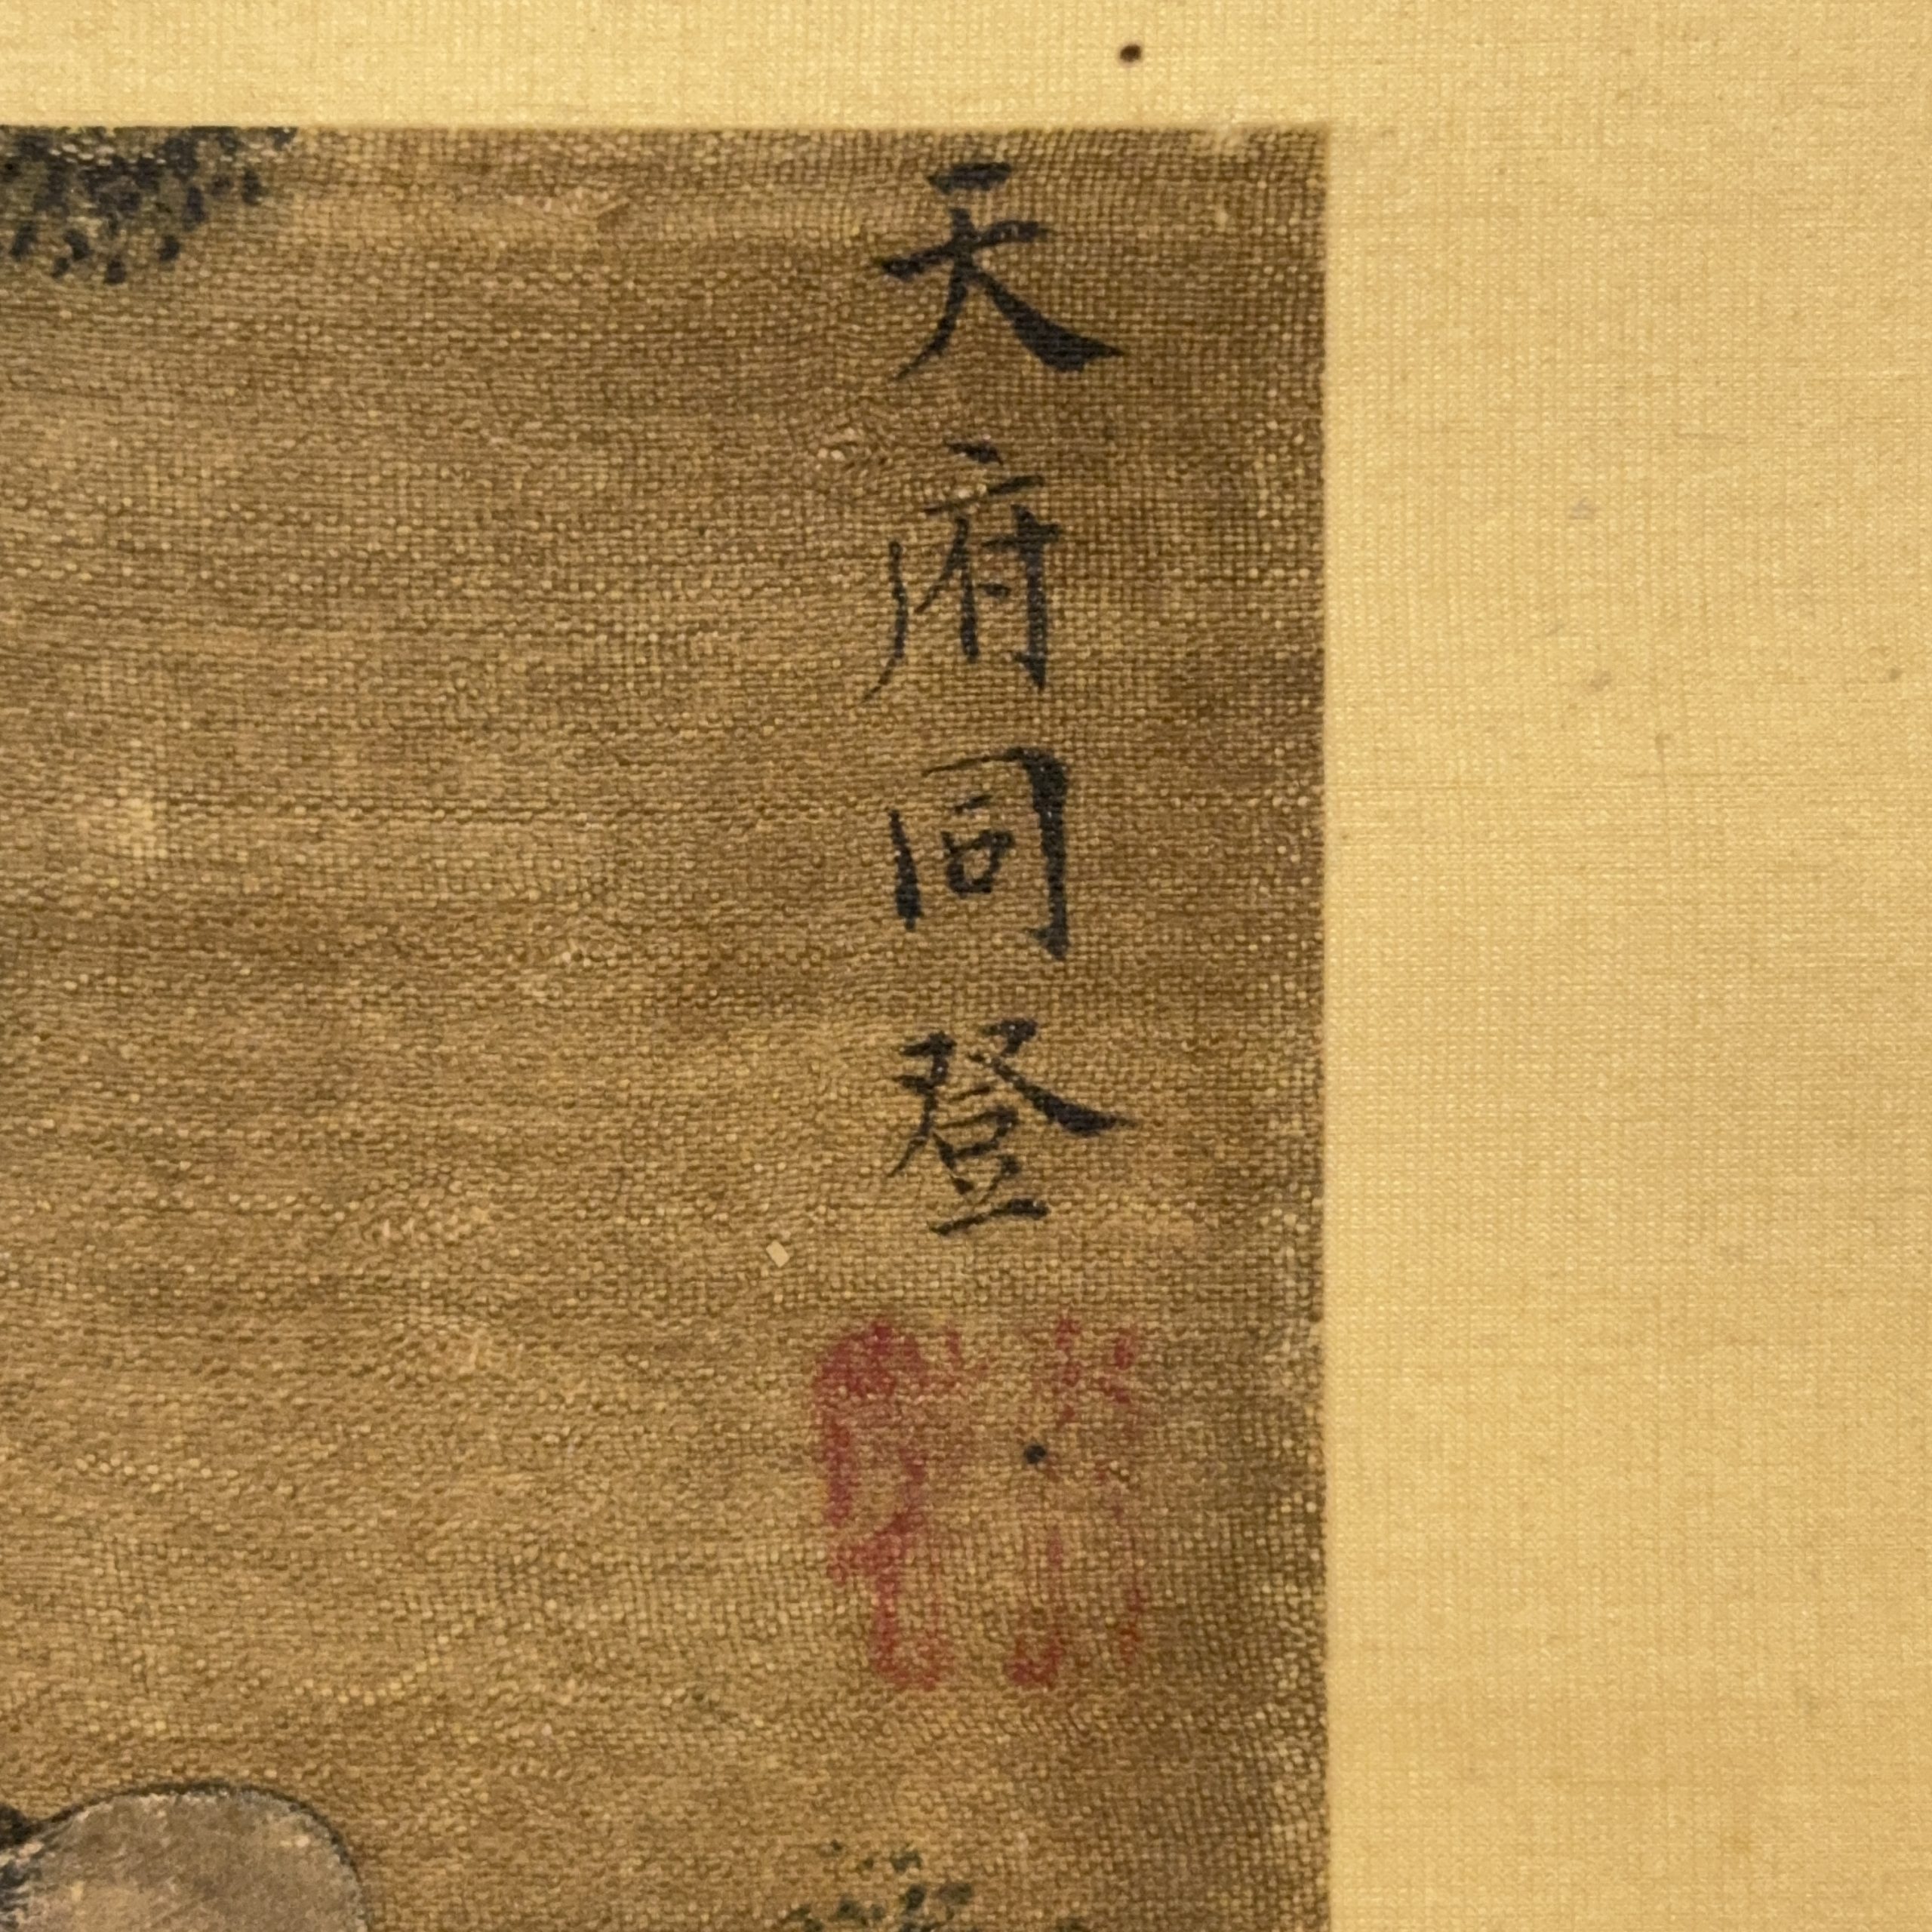 天府同登